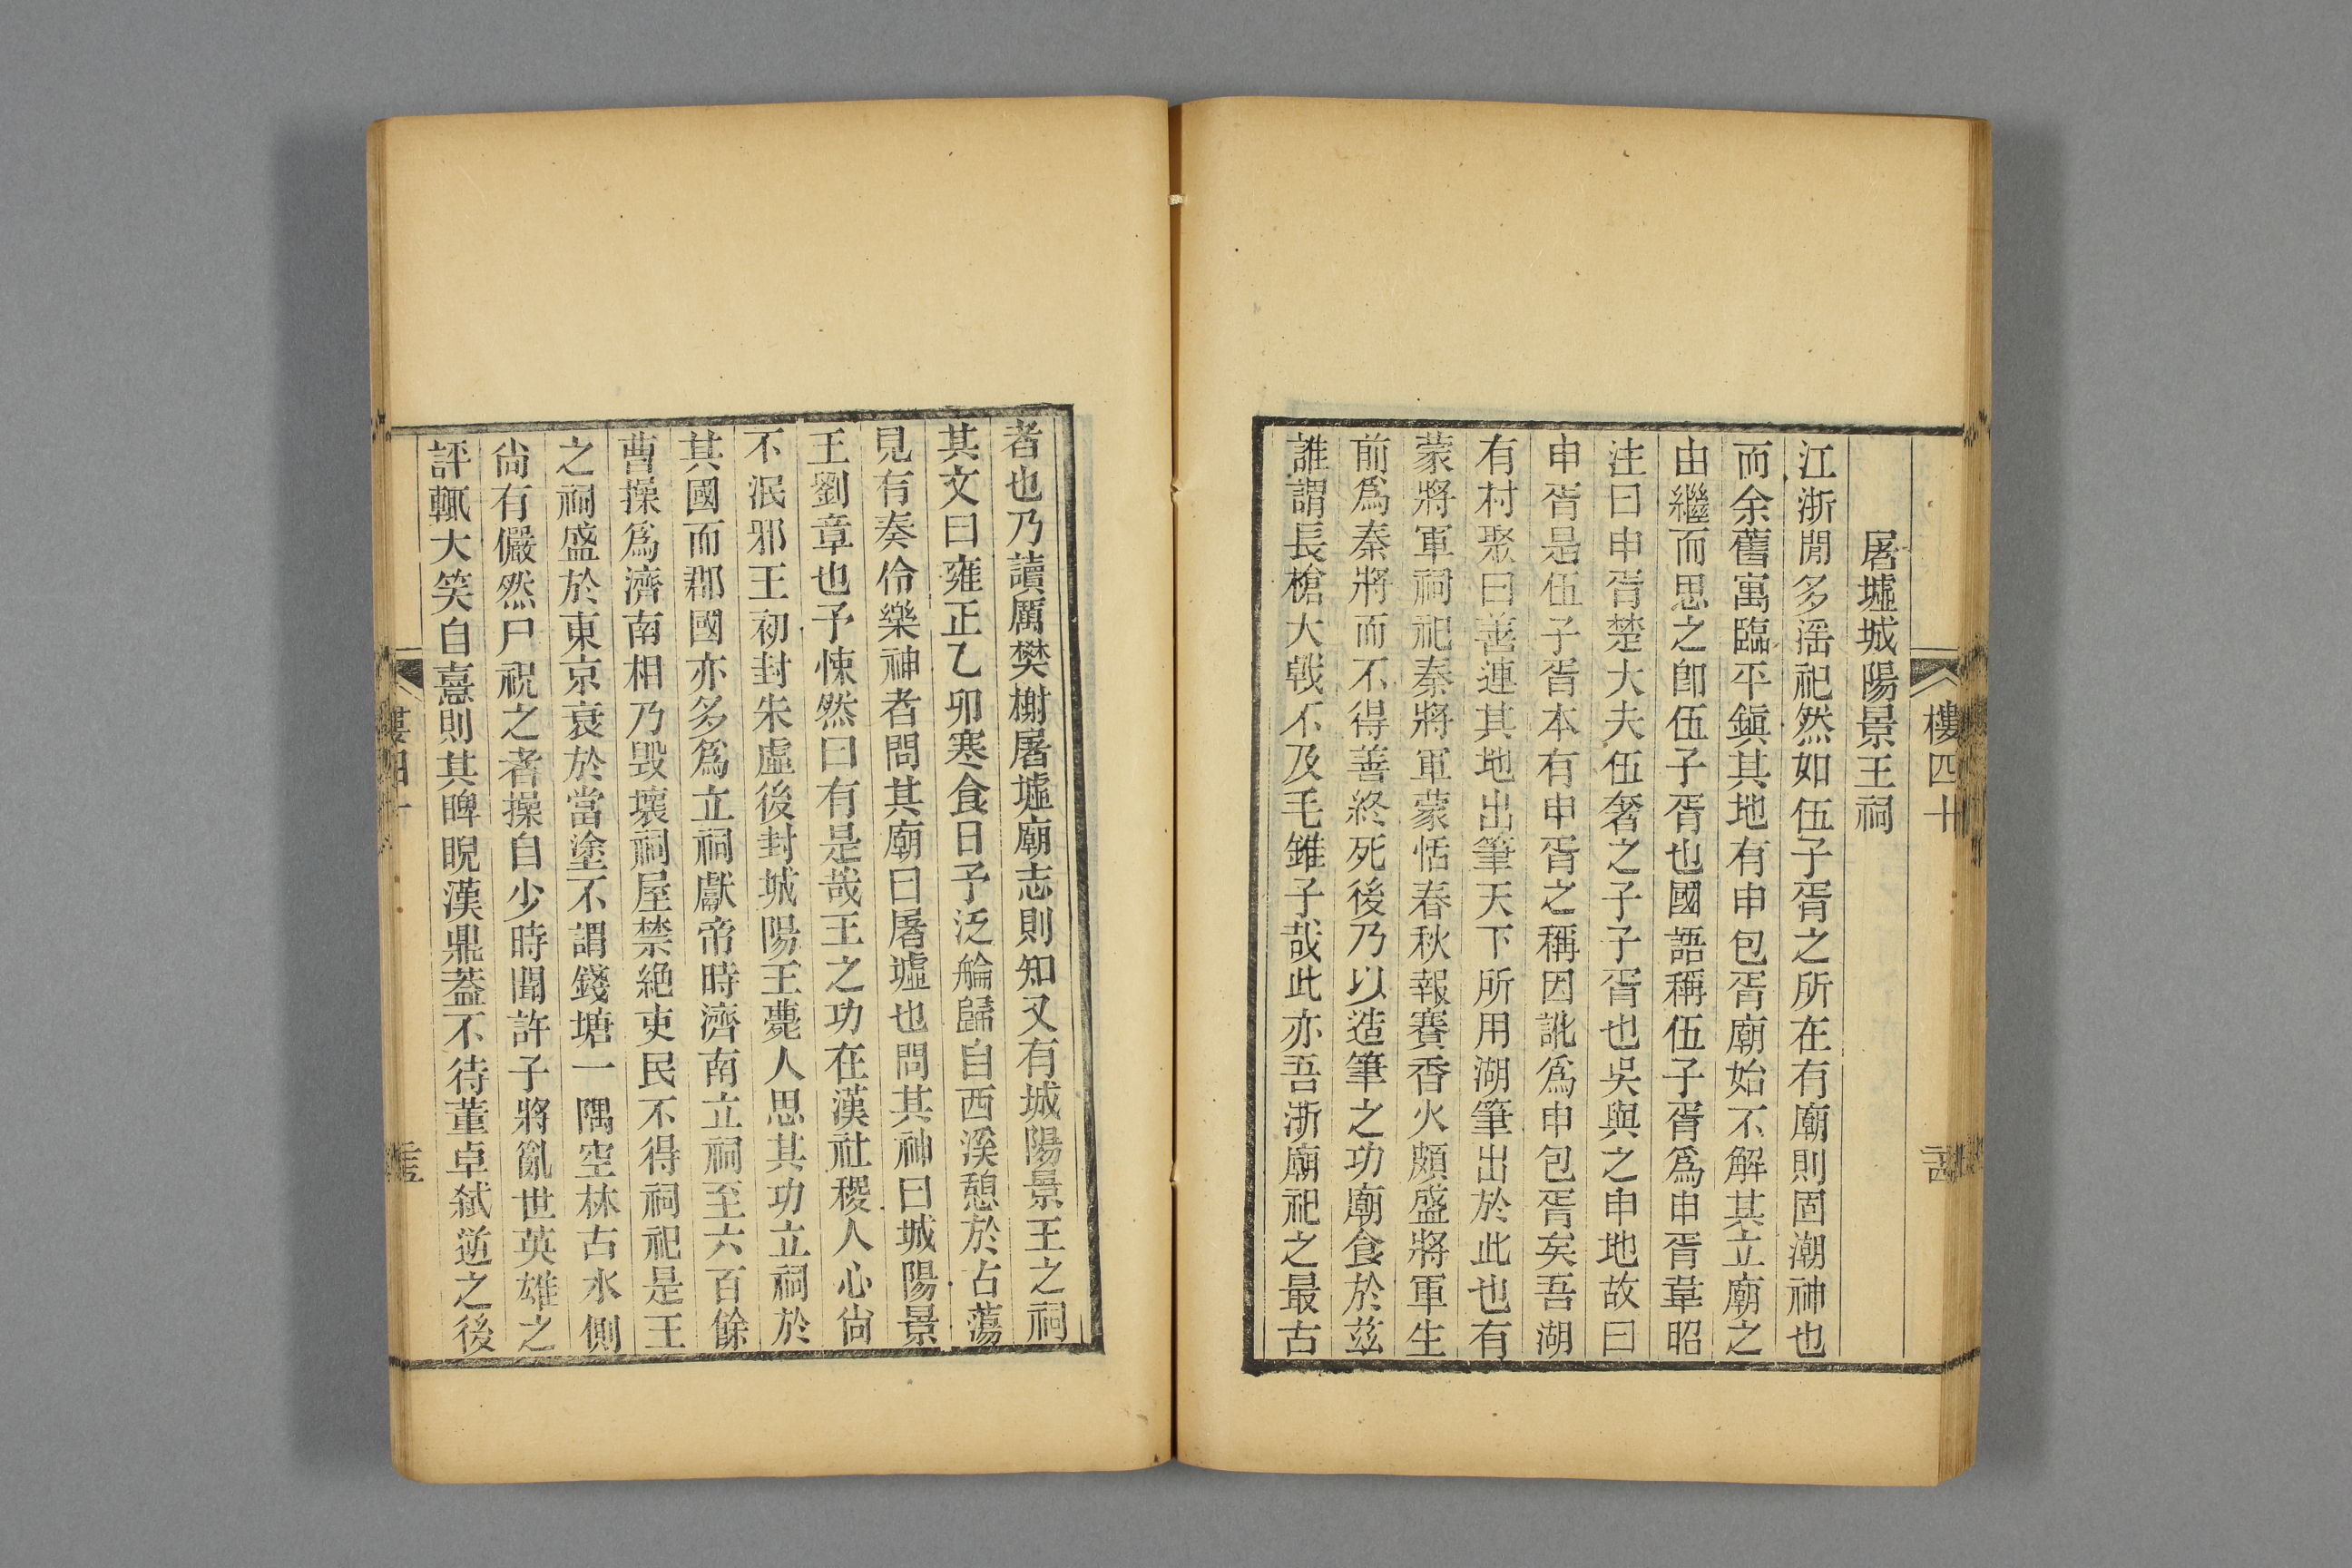 樓四十
屠墟城陽景王祠
江浙閒多淫祀然如伍子胥之所在有廟則固潮神也
而余舊寓臨平鎭其地有申包胥廟始不解其立廟之
由繼而思之卽伍子胥也國語稱伍子胥爲申胥韋昭
注曰申胥楚大夫伍奢之子子胥也吳與之申地故曰
申胥是伍子胥本有申胥之稱因訛爲申包胥矣吾湖
有村聚曰善連其地出筆天下所用湖筆出於此也有
蒙將軍祠祀秦將軍蒙恬春秋報賽香火頗盛將軍生
前爲秦將而不得善終死後乃以造筆之功廟食於茲
誰謂長槍大戟不及毛錐子哉此亦吾浙廟祀之最古
者也乃讀厲樊榭屠墟廟志則知又有城陽景王之祠
其文曰雍正乙卯寒食日予泛舩歸自西溪憩於古蕩
見有奏伶樂神者問其廟曰屠墟也問其神曰城陽景
王劉章也予悚然曰有是哉王之功在漢社稷人心尙
不泯邪王初封朱虛後封城陽王薨人思其功立祠於
其國而郡國亦多爲立祠獻帝時濟南立祠至六百餘
曹操爲濟南相乃毀壞祠屋禁絶吏民不得祠祀是王
之祠盛於東京衰於當塗不謂錢塘一隅空林古水側
尙有儼然尸祝之者操自少時聞許子將亂世英雄之
評輒大笑自憙則其睥睨漢鼎蓋不待董卓弑逆之後
樓四十